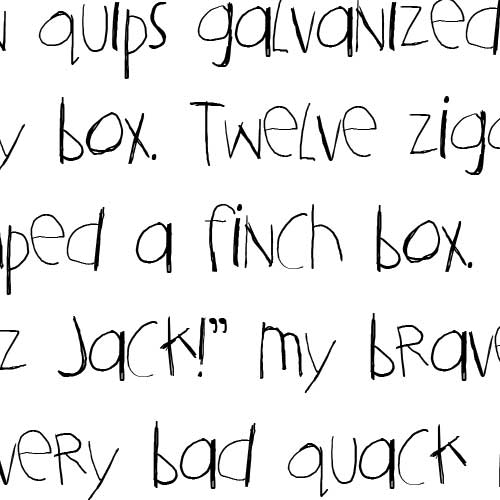 quips galvanized
y box. Twelve zigz
ped a finch box.
z Jack!” my brave
very bad quack